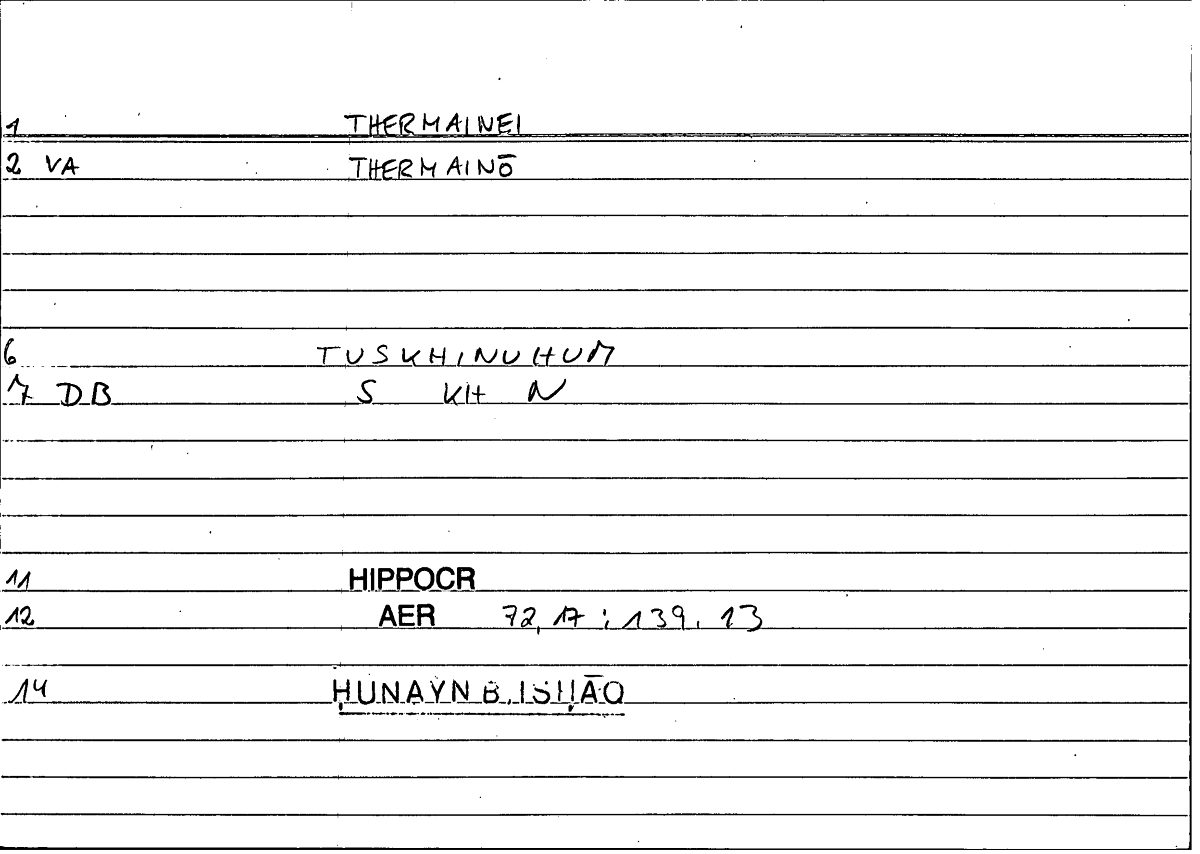 1 THERMAINEI
2 VA THERMAINŌ
6 TUSKHINUHUM
7 DB S KH N
11 HIPPOCR
12 AER 72,17 : 139,13
14 ḤUNAYN B. ISḤĀQ